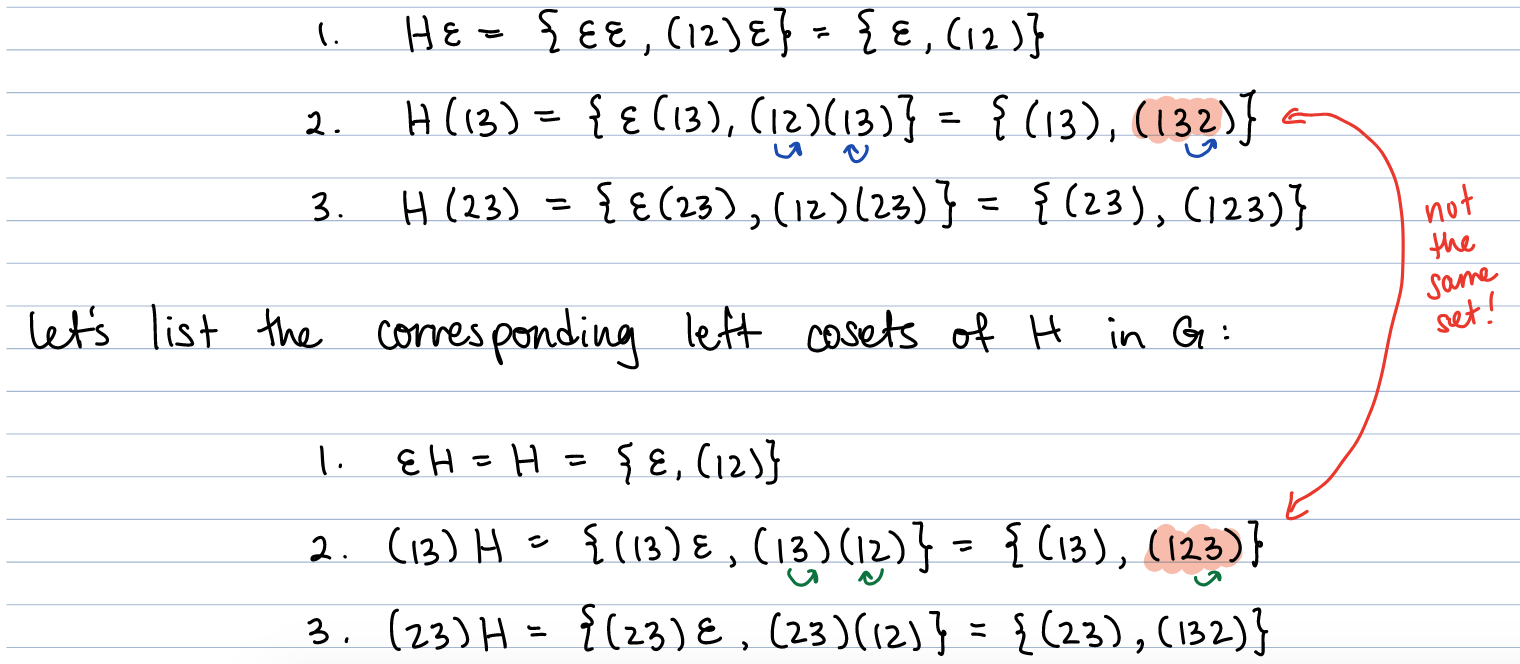 1. Hε = {εε, (12)ε} = {ε, (12)}
2. H(13) = {ε(13), (12)(13)} = {(13), (132)}
3. H(23) = {ε(23), (12)(23)} = {(23), (123)}
not
the
same
set!
let's list the corresponding left cosets of H in G:
1. εH = H = {ε, (12)}
2. (13)H = {(13)ε, (13)(12)} = {(13), (123)}
3. (23)H = {(23)ε, (23)(12)} = {(23), (132)}